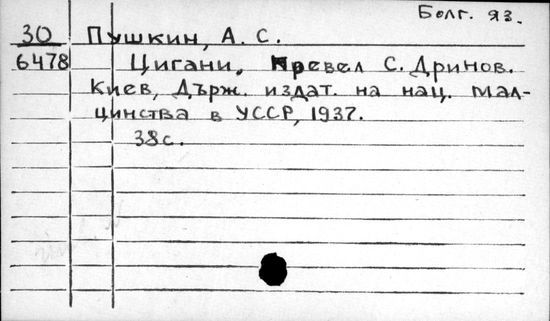 Болг. яз.
30 Пушкин, А. С.
6478 Цигани, превел С. Дринов.
Киев, Държ. издат. на нац. мал-
цинства в УССР, 1937.
38с.